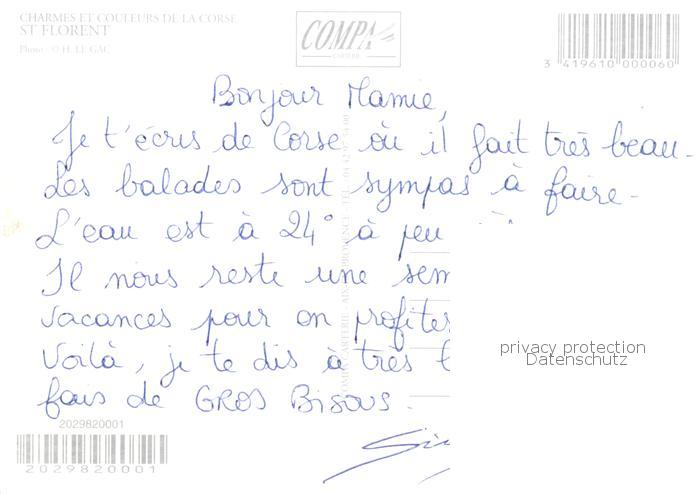 CHARMES ET COULEURS DE LA CORSE
ST FLORENT
Photo - © H. LE GAC
COMPA
CARTERIE
3 419610 000060
Bonjour Mamie,
Je t'écris de Corse où il fait très beau.
Les balades sont sympas à faire.
L'eau est à 24° à peu
Il nous reste une sem
vacances pour on profiter
Voilà, je te dis à très b
fais de GROS BISOUS.
privacy protection
Datenschutz
2029820001
2029820001